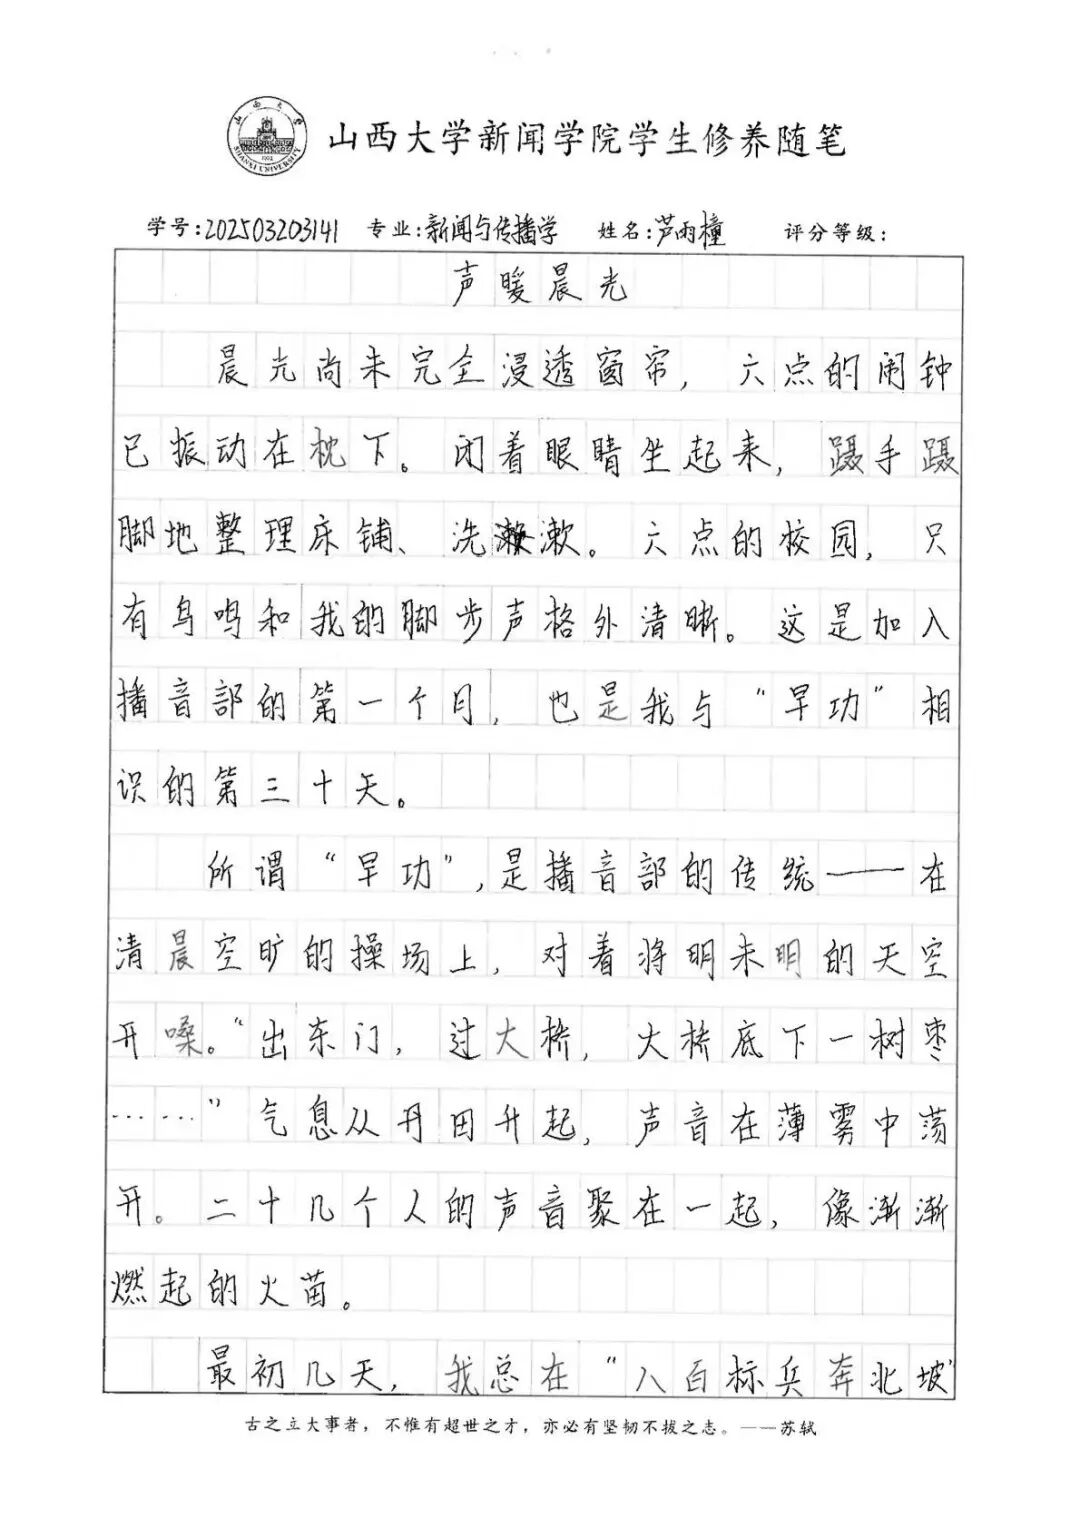 山西大学新闻学院学生修养随笔
学号:202503203141 专业:新闻与传播学 姓名:芦雨橦 评分等级:
声暖晨光
晨光尚未完全浸透窗帘，六点的闹钟
已振动在枕下。闭着眼睛坐起来，蹑手蹑
脚地整理床铺、洗漱。六点的校园，只
有鸟鸣和我的脚步声格外清晰。这是加入
播音部的第一个月，也是我与“早功”相
识的第三十天。
所谓“早功”，是播音部的传统——在
清晨空旷的操场上，对着将明未明的天空
开嗓。“出东门，过大桥，大桥底下一树枣
……”气息从丹田升起，声音在薄雾中荡
开。二十几个人的声音聚在一起，像渐渐
燃起的火苗。
最初几天，我总在“八百标兵奔北坡”
古之立大事者，不惟有超世之才，亦必有坚韧不拔之志。——苏轼
山西大学
SHANXI UNIVERSITY
1902